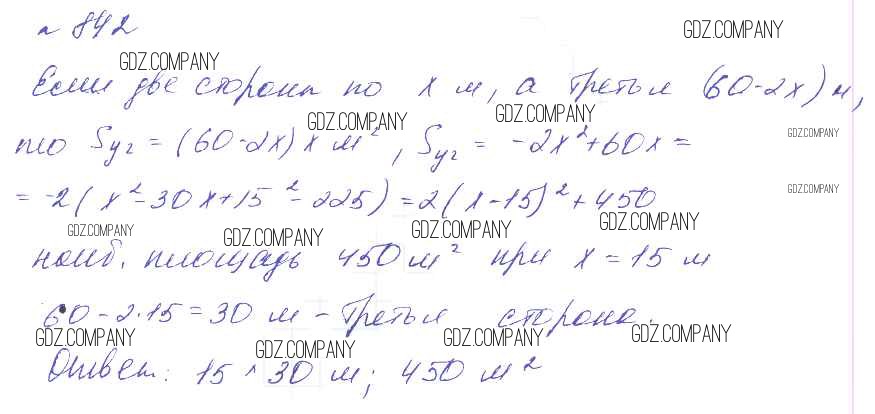 № 842
GDZ.COMPANY
GDZ.COMPANY
Если две стороны по x м, а третья (60-2x) м,
GDZ.COMPANY
GDZ.COMPANY
GDZ.COMPANY
то Sуг = (60-2x) x м², Sуг = -2x²+60x =
= -2(x²-30x+15²-225) = 2(x-15)²+450
GDZ.COMPANY
GDZ.COMPANY
GDZ.COMPANY
GDZ.COMPANY
GDZ.COMPANY
наиб. площадь 450 м² при x = 15 м
60-2·15=30 м - третья сторона.
GDZ.COMPANY
GDZ.COMPANY
GDZ.COMPANY
GDZ.COMPANY
Ответ: 15 × 30 м; 450 м²